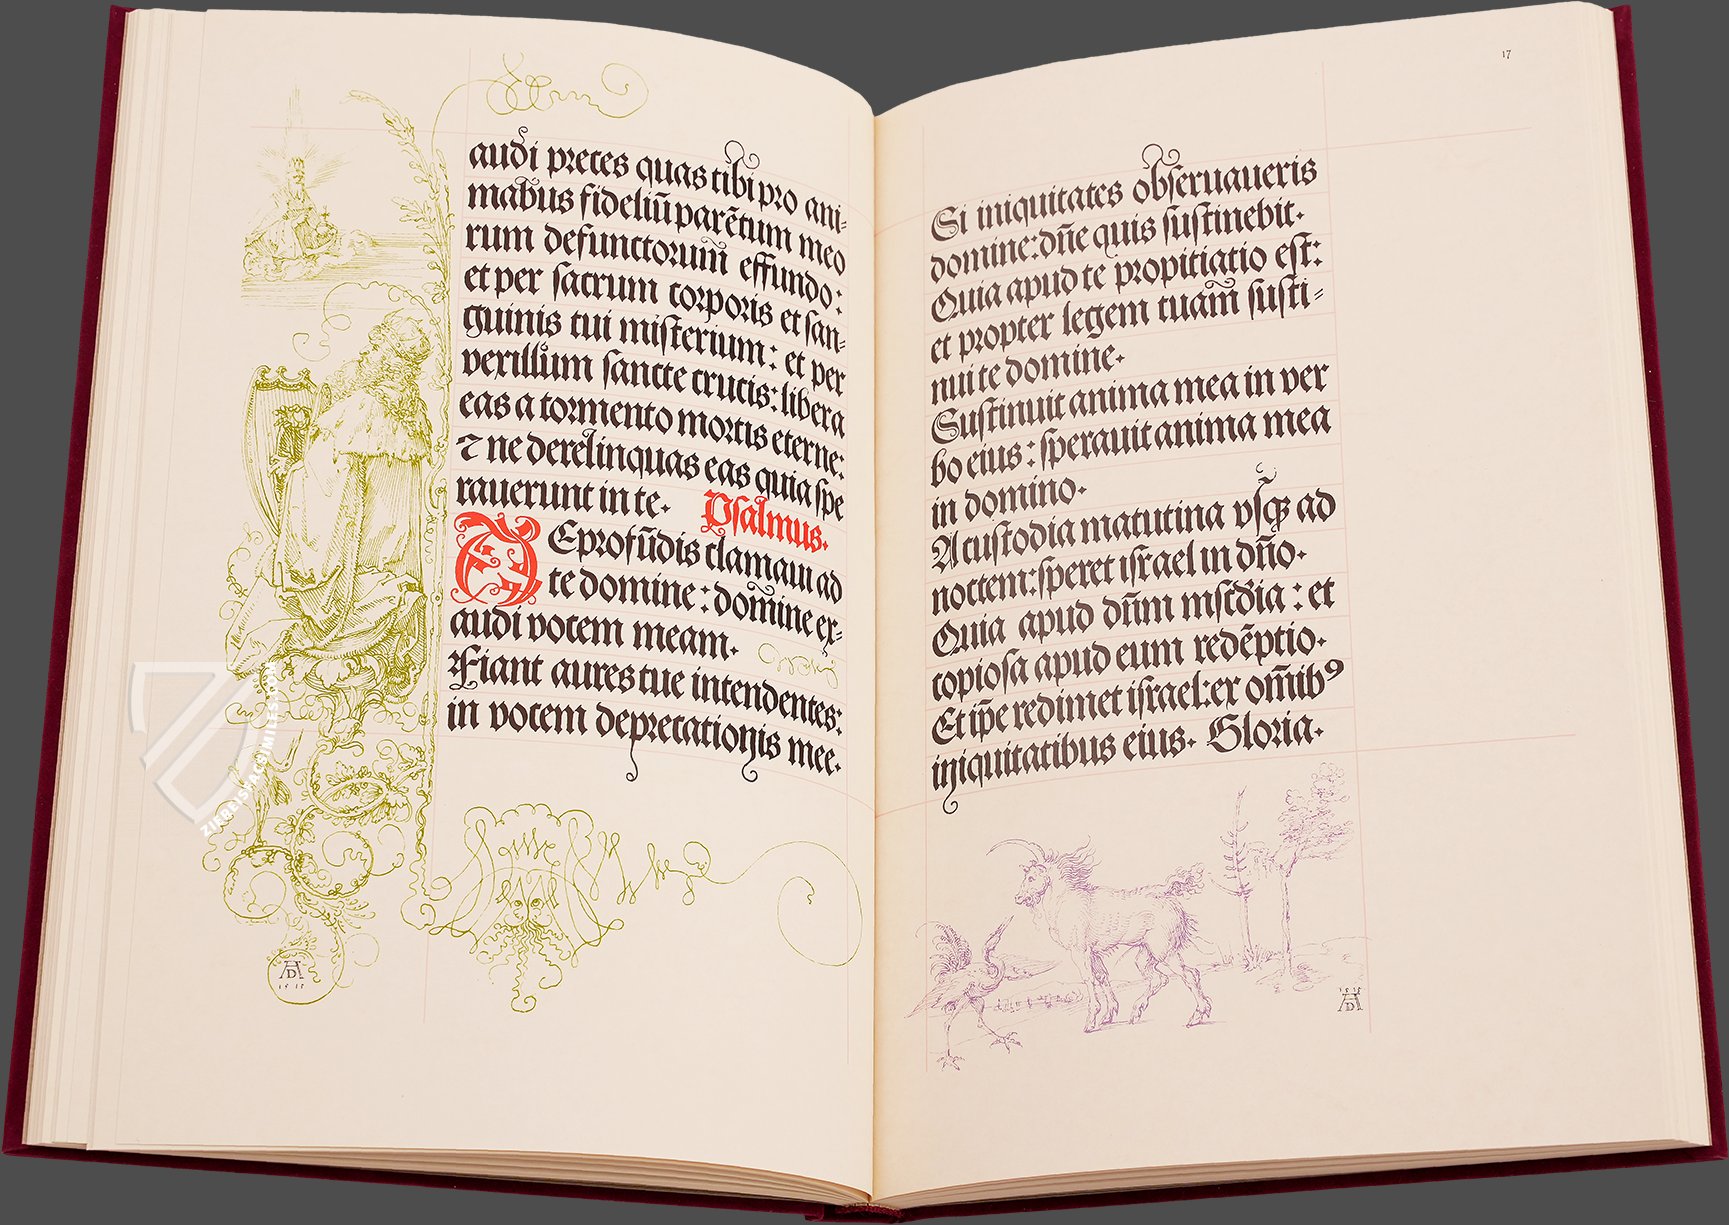 audi preces quas tibi pro ani-
mabus fideliū parētum meo
rum defunctorum̄ effundo:
et per sacrum corporis et san-
guinis tui misterium: et per
vexillum sancte crucis: libera
eas a tormento mortis eterne:
⁊ ne derelinquas eas quia spe
rauerunt in te. Psalmus.
DE profūdis clamaui ad
te domine: dom̄ine ex-
audi vocem meam.
Fiant aures tue intendentes:
in vocem deprecationis mee.
AD
1515
17
Si iniquitates obseruaueris
domine: dn̄e quis sustinebit.
Quia apud te propitiatio est:
et propter legem tuam̄ susti-
nui te domine.
Sustinuit anima mea in ver
bo eius: sperauit anima mea
in domino.
A custodia matutina vsq̨ ad
noctem: speret israel in dn̄o.
Quia apud dn̄m mſc̄dia: et
copiosa apud eum redēptio.
Et ip̄e redimet israel: ex om̄ibꝰ
iniquitatibus eius. Gloria.
1515
AD
ZIEREISFACSIMILES.COM